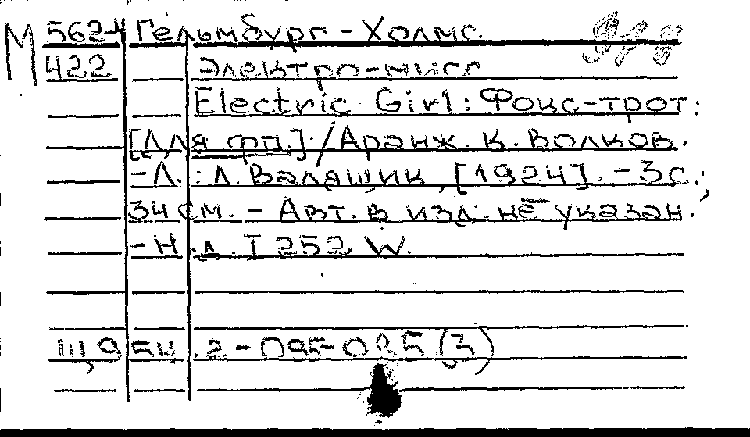 М 562-4 Гельмбург-Холмс.
422 Электро-мисс
Electric Girl: Фокс-трот:
[Для фп.] / Аранж. К. Волков.
-Л.: Л. Валящик, [1924]. - 3 с.;
34 см. - Авт. в изд. не указан.
-Н.д. I 252 W.
Щ954.2-095-0 5(3)